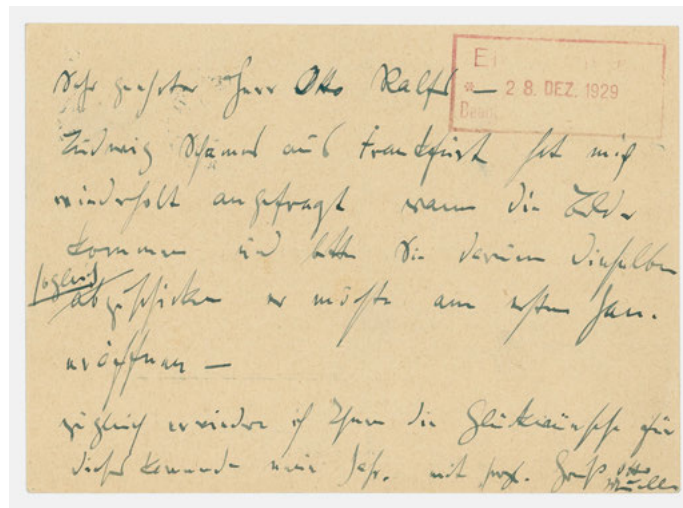 Sehr geehrter Herr Otto Ralfs —
28. DEZ. 1929
Ludwig Schames aus Frankfurt hat mich
wiederholt angefragt wann die Bilder
kommen und bitte Sie darum dieselben
sogleich
abzuschicken er möchte am ersten Jan.
eröffnen —
zugleich erwiedre ich Ihnen die Glükwünsche für
dieses kommende neue Jahr. mit herzl. Gruß Otto
Mueller